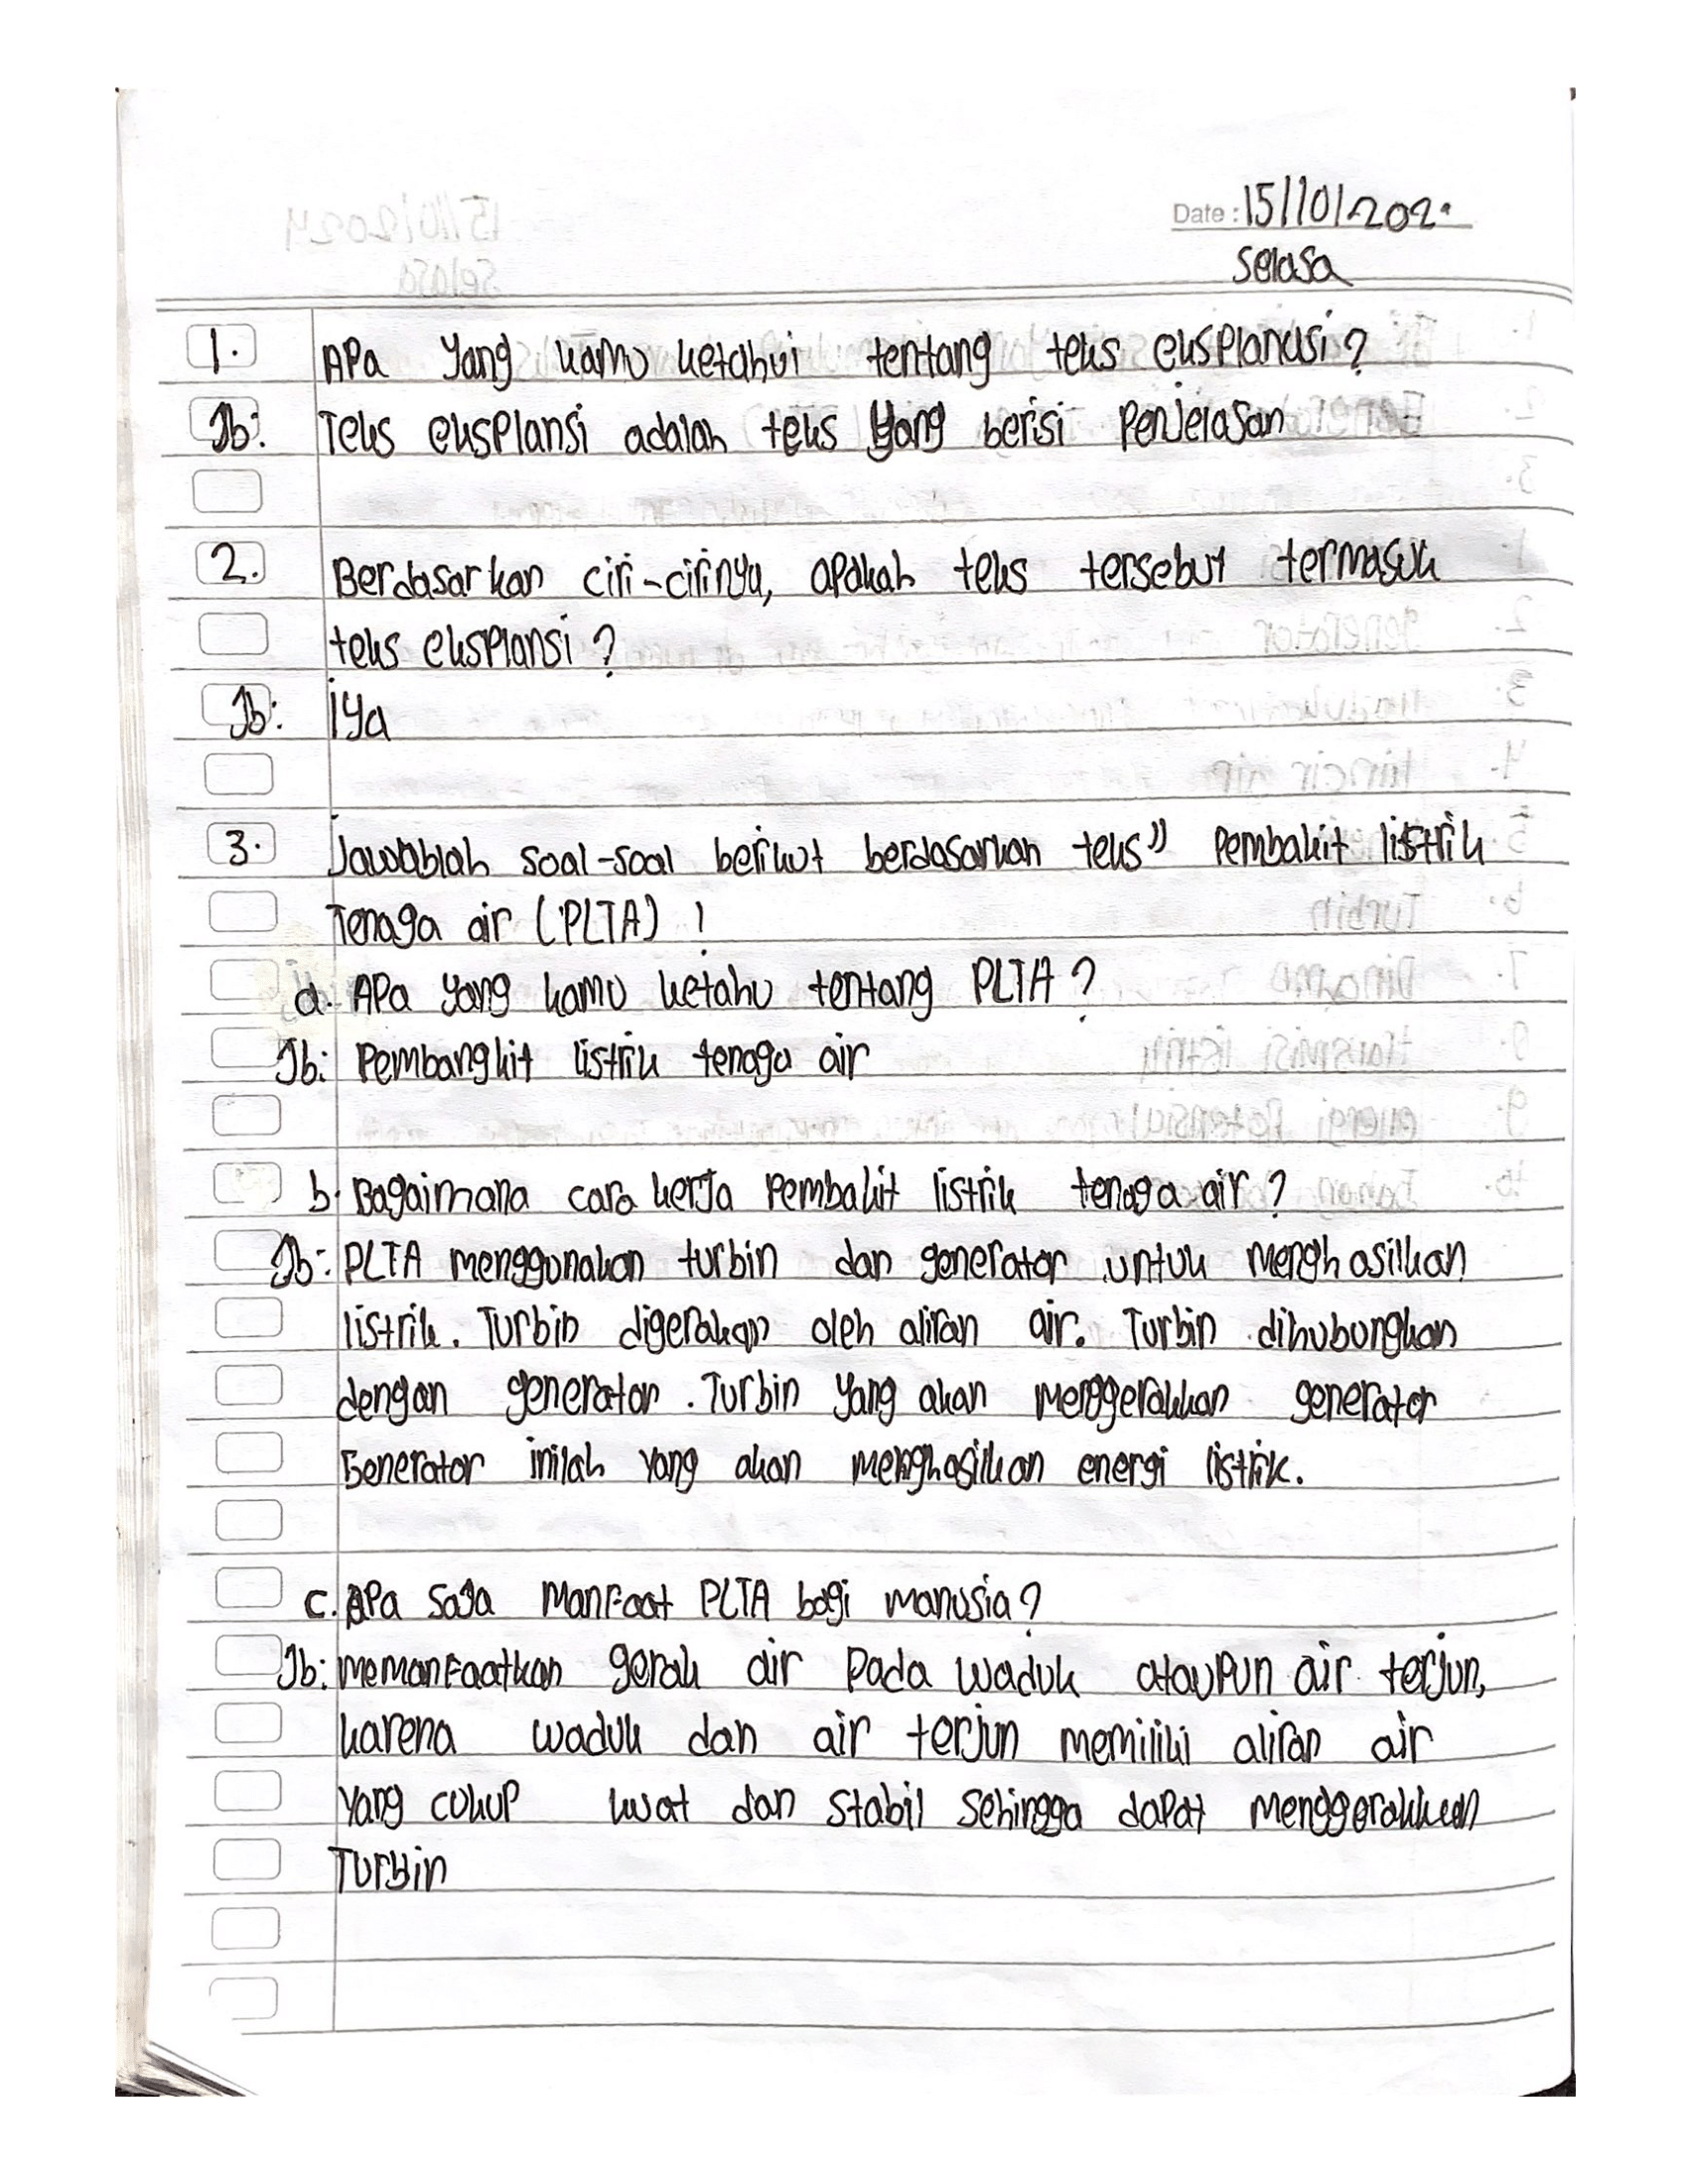 Date : 15/10/202
Selasa
1. Apa yang kamu ketahui tentang teks eksplanasi?
Jb: Teks eksplansi adalah teks yang berisi Penjelasan
2. Berdasarkan ciri-cirinya, apakah teks tersebut termasuk
teks eksplansi?
Jb: iya
3. Jawablah soal-soal berikut berdasarkan teks" Pembakit listrik
Tenaga air (PLTA) !
a. Apa yang kamu ketahu tentang PLTA?
Jb: Pembangkit listrik tenaga air
b. Bagaimana cara kerja Pembakit listrik tenaga air?
Jb: PLTA menggunakan turbin dan generator untuk menghasilkan
listrik. Turbin digerakan oleh aliran air. Turbin dihubungkan
dengan generator. Turbin yang akan menggerakkan generator
Generator inilah yang akan menghasilkan energi listrik.
c. Apa saja manfaat PLTA bagi manusia?
Jb: memanfaatkan gerak air Pada waduk ataupun air terjun,
karena waduk dan air terjun memiliki aliran air
yang cukup kuat dan stabil sehingga dapat menggerakkean
Turbin